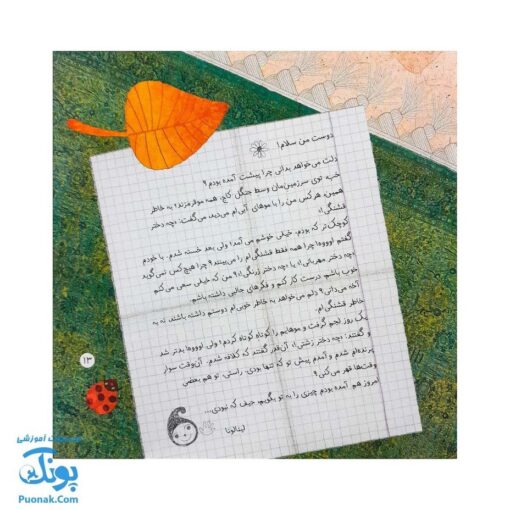 دوست من سلام!
دلت می‌خواهد بدانی چرا پیشت آمده بودم؟
خب، توی سرزمین‌مان وسط جنگل کاج، همه موقرمزند! به خاطر
همین، هرکس من را با موهای آبی‌ام می‌دید، می‌گفت: «چه دختر
قشنگی!»
کوچک‌تر که بودم، خیلی خوشم می‌آمد! ولی بعد خسته شدم. با خودم
گفتم اووووه! چرا همه فقط قشنگی‌ام را می‌بینند؟ چرا هیچ‌کس نمی‌گوید
«چه دختر مهربانی!» یا «چه دختر زرنگی!»؟ من که خیلی سعی می‌کنم
خوب باشم، درست کار کنم و فکرهای جالبی داشته باشم.
آخه می‌دانی؟ دلم می‌خواهد به خاطر خوبی‌ام دوستم داشته باشند، نه به
خاطر قشنگی‌ام.
یک روز لجم گرفت و موهایم را کوتاه کوتاه کردم! ولی اووووه! بدتر شد
و گفتند: «چه دختر زشتی!» آن‌قدر گفتند که کلافه شدم. آن‌وقت سوار
پرنده‌ام شدم و آمدم پیش تو که تنها بودی. راستی، تو هم بعضی
وقت‌ها قهر می‌کنی؟
امروز هم آمده بودم چیزی را به تو بگویم، حیف که نبودی...
لینالونا
۱۳
آموزشی
پونک
Puonak.Com